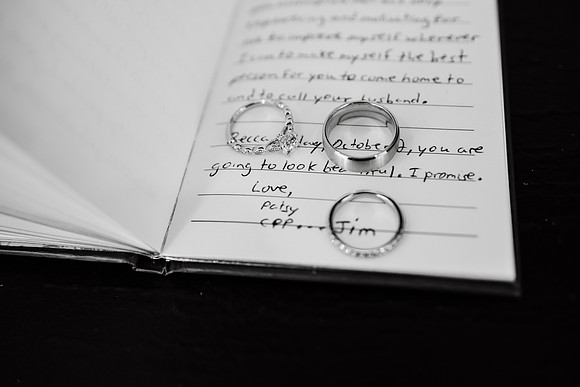 repeating and motivating for
me to improve myself wherever
I can to make myself the best
person for you to come home to
and to call your husband.
Becca October 2, you are
going to look beautiful. I promise.
Love,
Patsy
CPP.... Jim